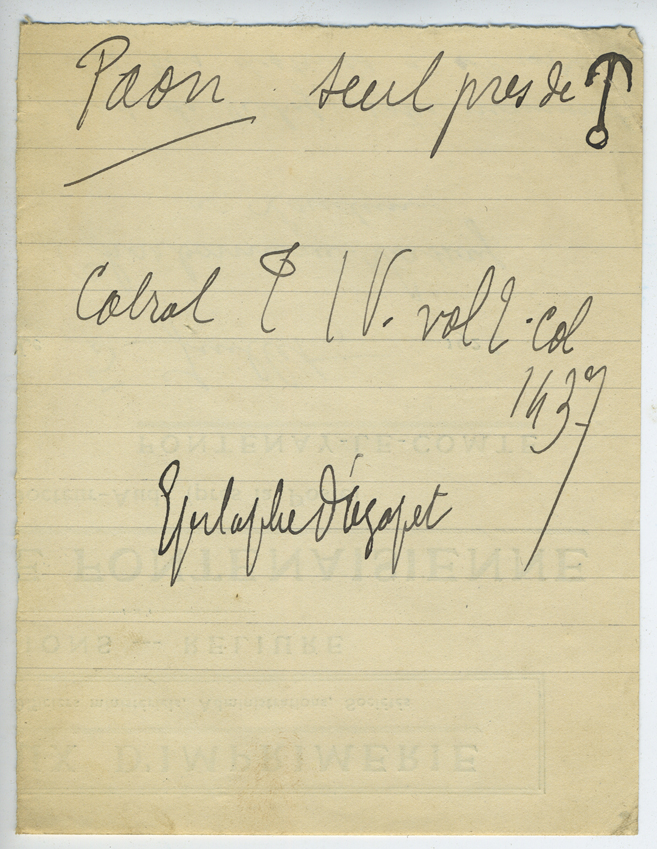 Paon seul près de
Cabrol T IV. vol 2. col
1437
Epitaphe d'Agapet
FONTENAY-LE-COMTE
E FONTENAISIENNE
IONS — RELIURE
Administrations, Sociétés
X D'IMPRIMERIE